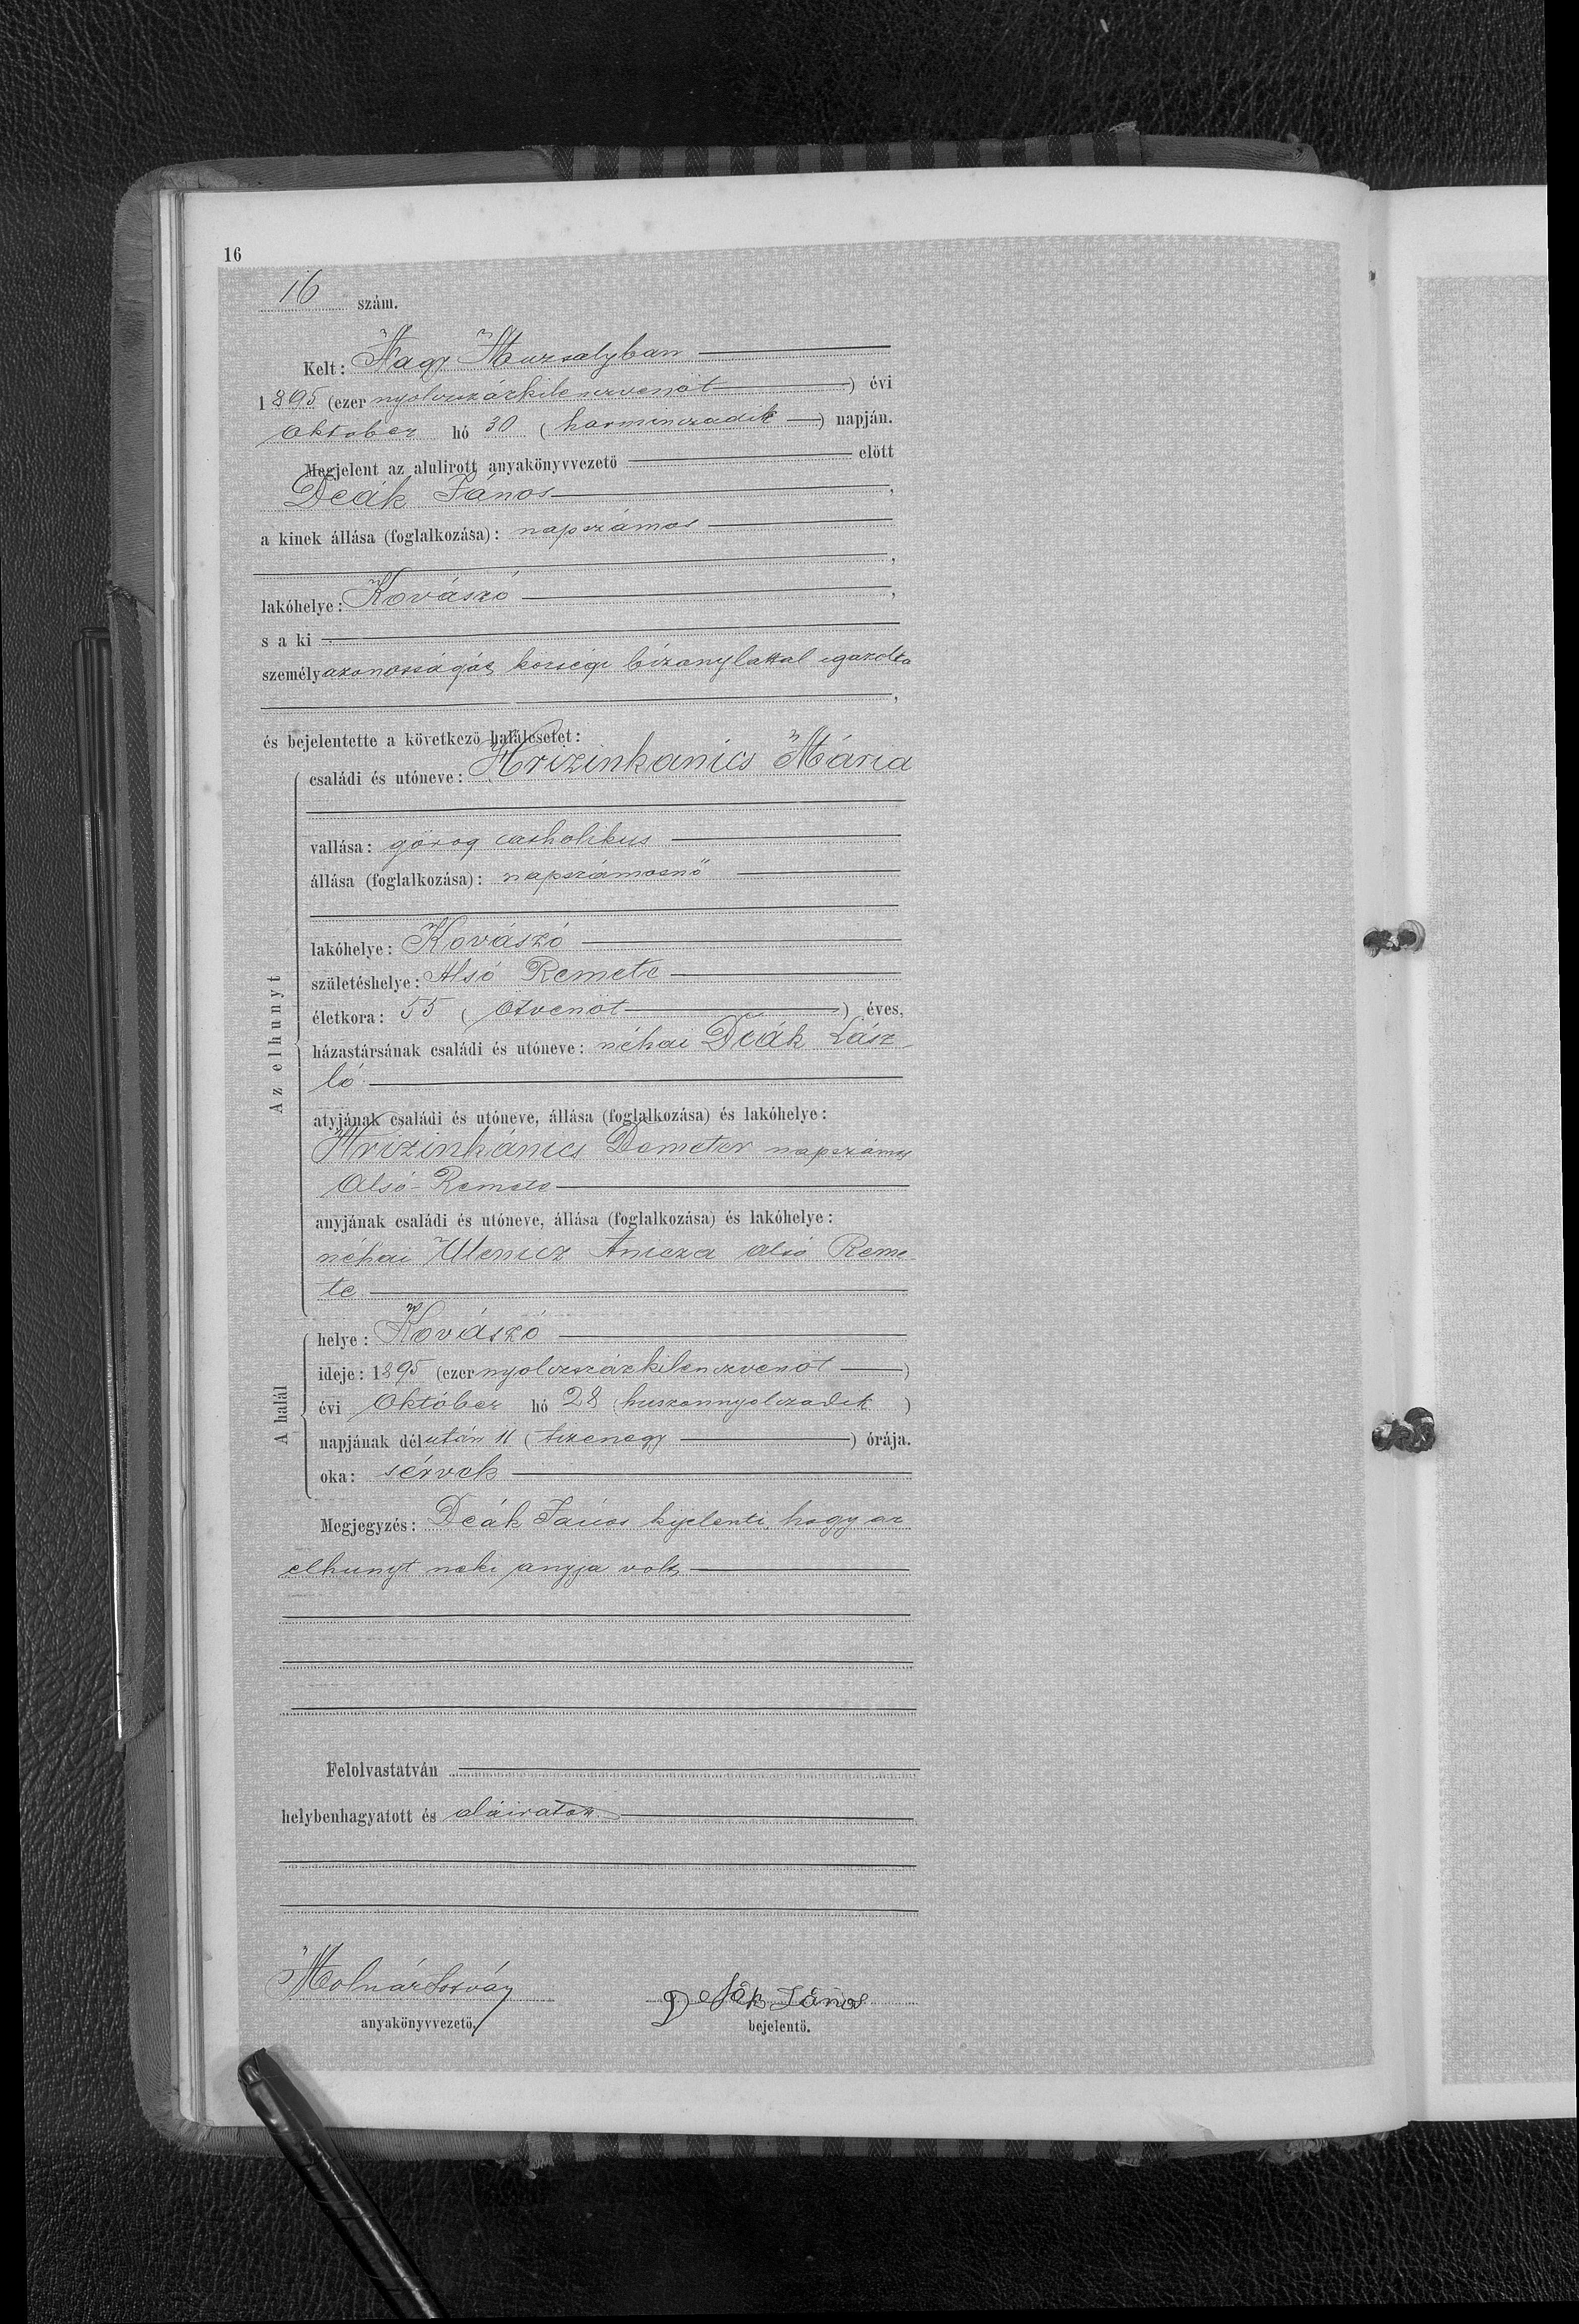 16
16 szám.
Kelt: Nagy Muzsalyban
1895 (ezer nyolczszázkilenczvenöt) évi
Október hó 30 (harminczadik) napján.
Megjelent az alulirott anyakönyvvezető előtt
Deák János,
a kinek állása (foglalkozása): napszámos
,
lakóhelye: Kovászó,
s a ki
személyazonosságát községi bizonylattal igazolta
,
és bejelentette a következő halálesetet:
családi és utóneve: Hrizinkanics Mária
vallása: görög catholikus
állása (foglalkozása): napszámosnő
lakóhelye: Kovászó
születéshelye: Alsó Remete
életkora: 55 (ötvenöt) éves,
házastársának családi és utóneve: néhai Deák Lász-
ló
atyjának családi és utóneve, állása (foglalkozása) és lakóhelye:
Hrizinkánics Demeter napszámos
Alsó-Remete
anyjának családi és utóneve, állása (foglalkozása) és lakóhelye:
néhai Ulenicz Anicza alsó Reme-
te
Az elhunyt
helye: Kovászó
ideje: 1895 (ezer nyolczszázkilenczvenöt)
évi Október hó 28 (huszonnyolczadik)
napjának délután 11 (tizenegy) órája.
oka: sérvek
A halál
Megjegyzés: Deák János kijelenti, hogy az
elhunyt neki anyja volt
Felolvastatván
helybenhagyatott és aláiratott.
Molnár Istvan Deák János
anyakönyvvezető. bejelentő.